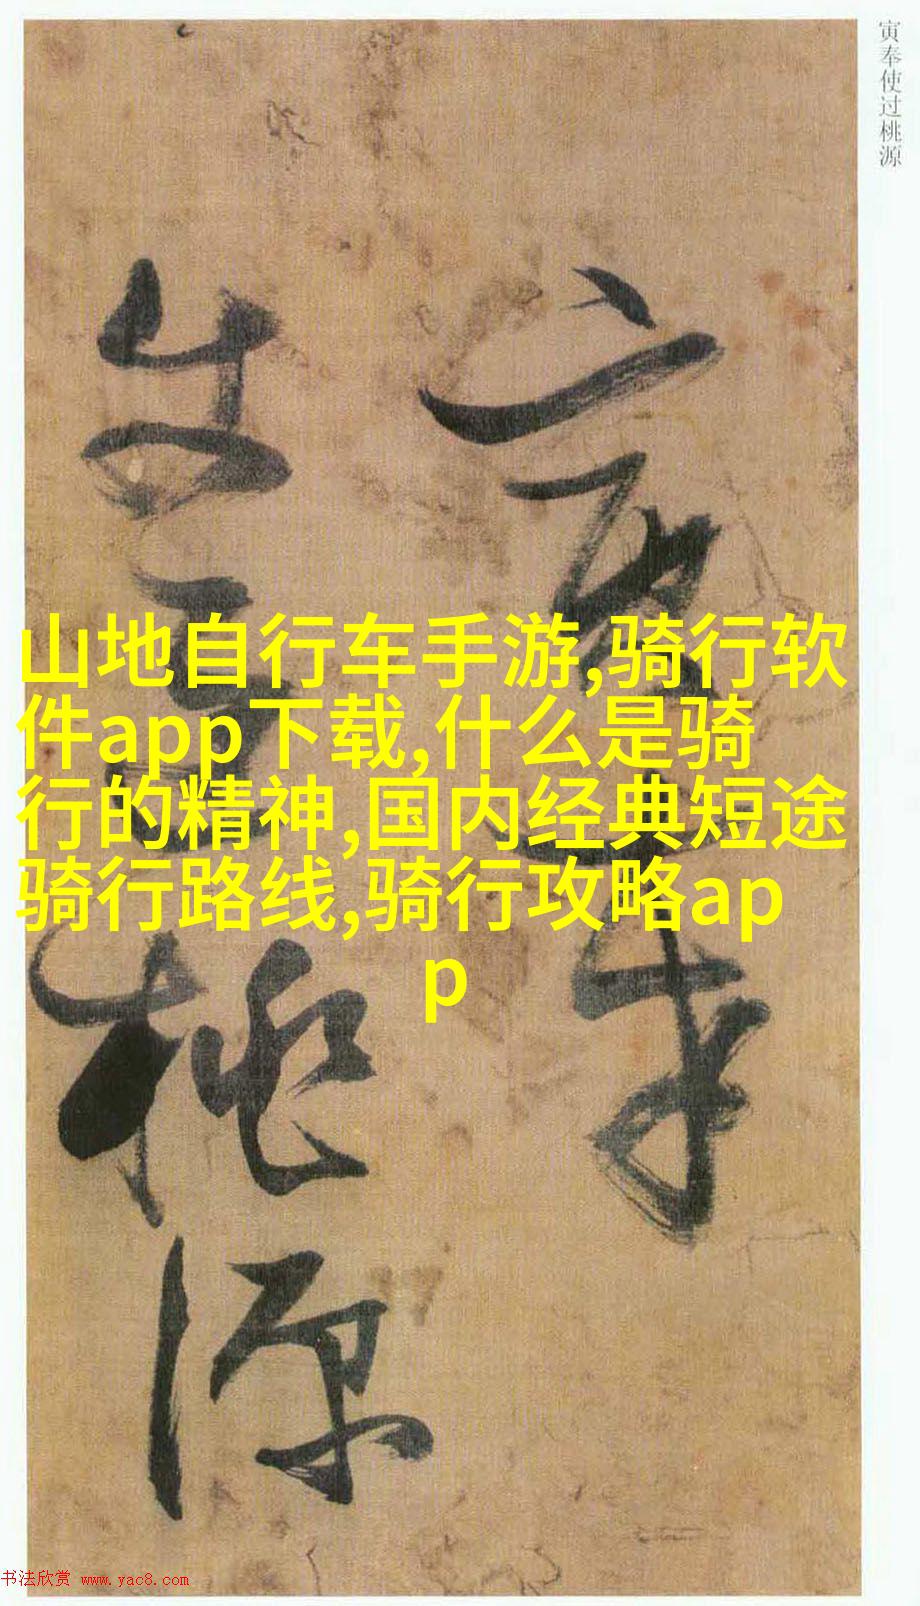 寅奉使过桃源
寅奉
使过桃源
山地自行车手游,骑行软
件app下载,什么是骑
行的精神,国内经典短途
骑行路线,骑行攻略ap
p
书法欣赏 www.yac8.com